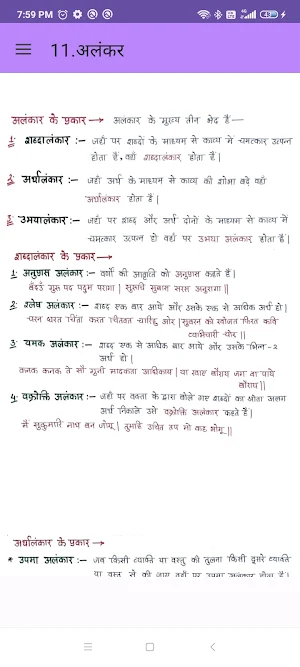 7:59 PM
11.अलंकर
अलंकार के प्रकार → अलंकार के मुख्य तीन भेद हैं —
1. शब्दालंकार :- जहाँ पर शब्दों के माध्यम से काव्य में चमत्कार उत्पन्न
होता है, वहाँ शब्दालंकार होता है |
2. अर्थालंकार :- जहाँ अर्थ के माध्यम से काव्य की शोभा बढ़े वहाँ
अर्थालंकार होता है |
3. उभयालंकार :- जहाँ पर शब्द और अर्थ दोनों के माध्यम से काव्य में
चमत्कार उत्पन्न हो वहाँ पर उभया अलंकार होता है |
शब्दालंकार के प्रकार →
1. अनुप्रास अलंकार :- वर्णों की आवृत्ति को अनुप्रास कहते हैं |
बंदउँ गुरु पद पदुम परागा | सुरुचि सुबास सरस अनुरागा ||
2. श्लेष अलंकार :- शब्द एक बार आये और उसके एक से अधिक अर्थ हो |
चरन धरत चिंता करत चितवत चारिहु ओर | सुबरन को खोजत फिरत कवि
व्यभिचारी चोर ||
3. यमक अलंकार :- शब्द एक से अधिक बार आये और उसके भिन्न-२
अर्थ हो |
कनक कनक ते सौ गुनी मादकता अधिकाय | या खाए बौराय जग वा पाये
बौराय ||
4. वक्रोक्ति अलंकार :- जहाँ पर वक्ता के द्वारा बोले गए शब्दों का श्रोता अलग
अर्थ निकाले उसे वक्रोक्ति अलंकार कहते हैं |
मैं सुकुमारि नाथ बन जोगू | तुमहि उचित तप मो कह भोगू ||
अर्थालंकार के प्रकार →
* उपमा अलंकार :- जब किसी व्यक्ति या वस्तु की तुलना किसी दूसरे व्यक्ति
या वस्तु से की जाए वहाँ पर उपमा अलंकार होता है |